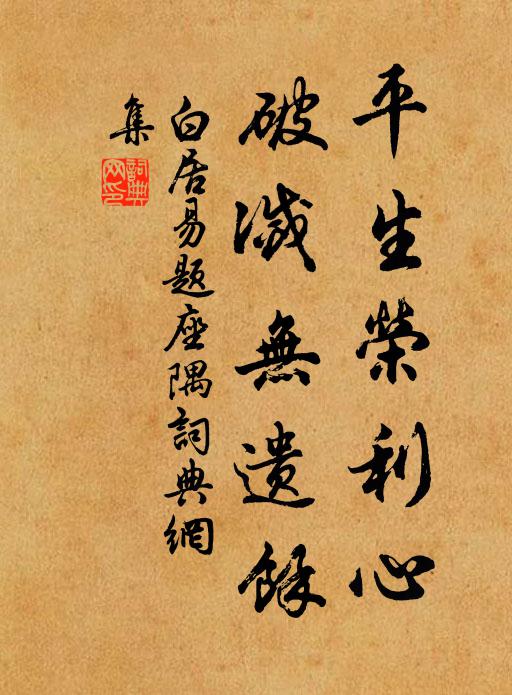 平生榮利心
破滅無遺餘
白居易題座隅詞典網
集
詞典
网印